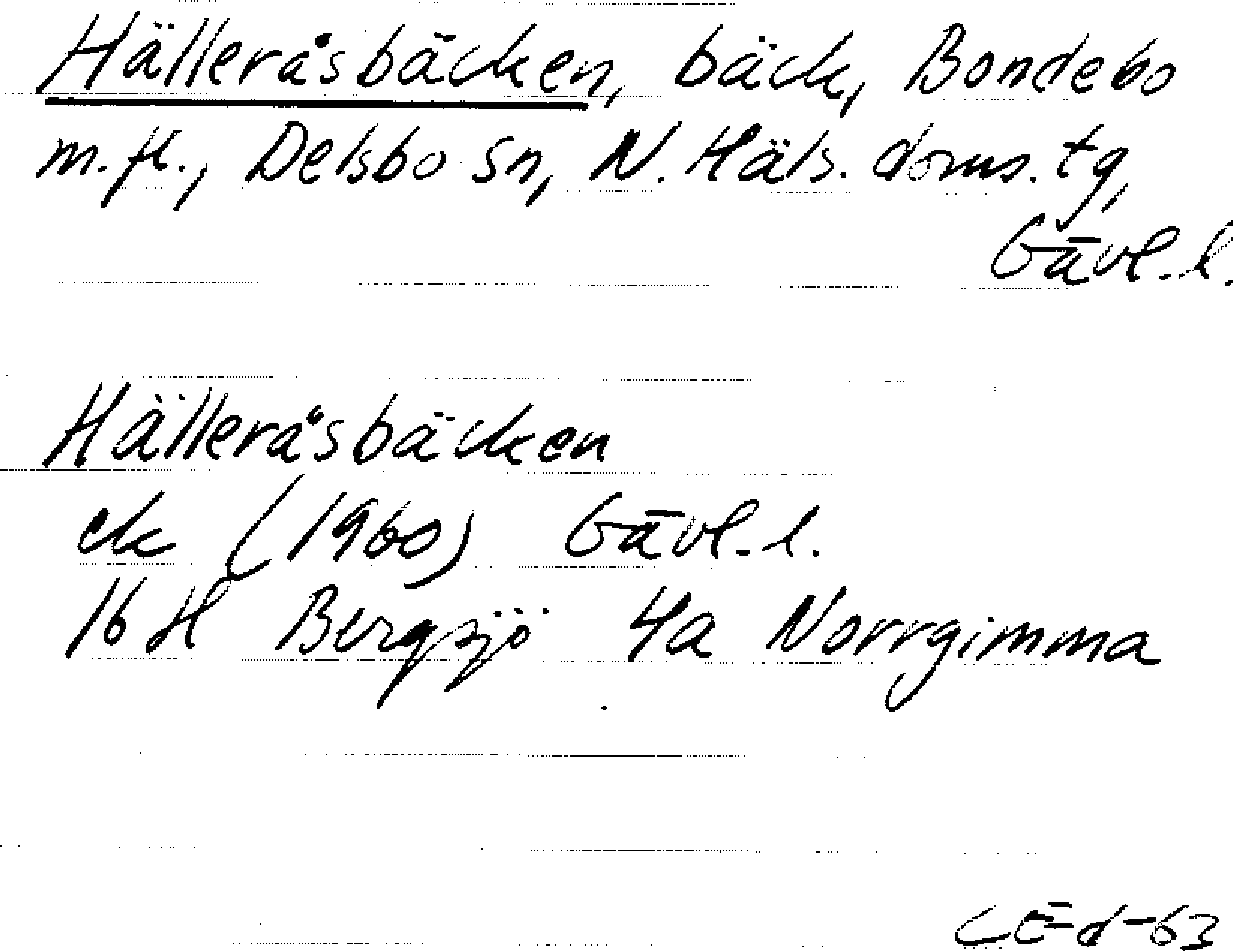 Hälleråsbäcken, bäck, Bondebo
m.fl., Delsbo sn, N. Häls. doms. tg,
Gävl. l.
Hälleråsbäcken
ek (1960) Gävl. l.
16 H Bergsjö 4a Norrgimma
CE-d-63